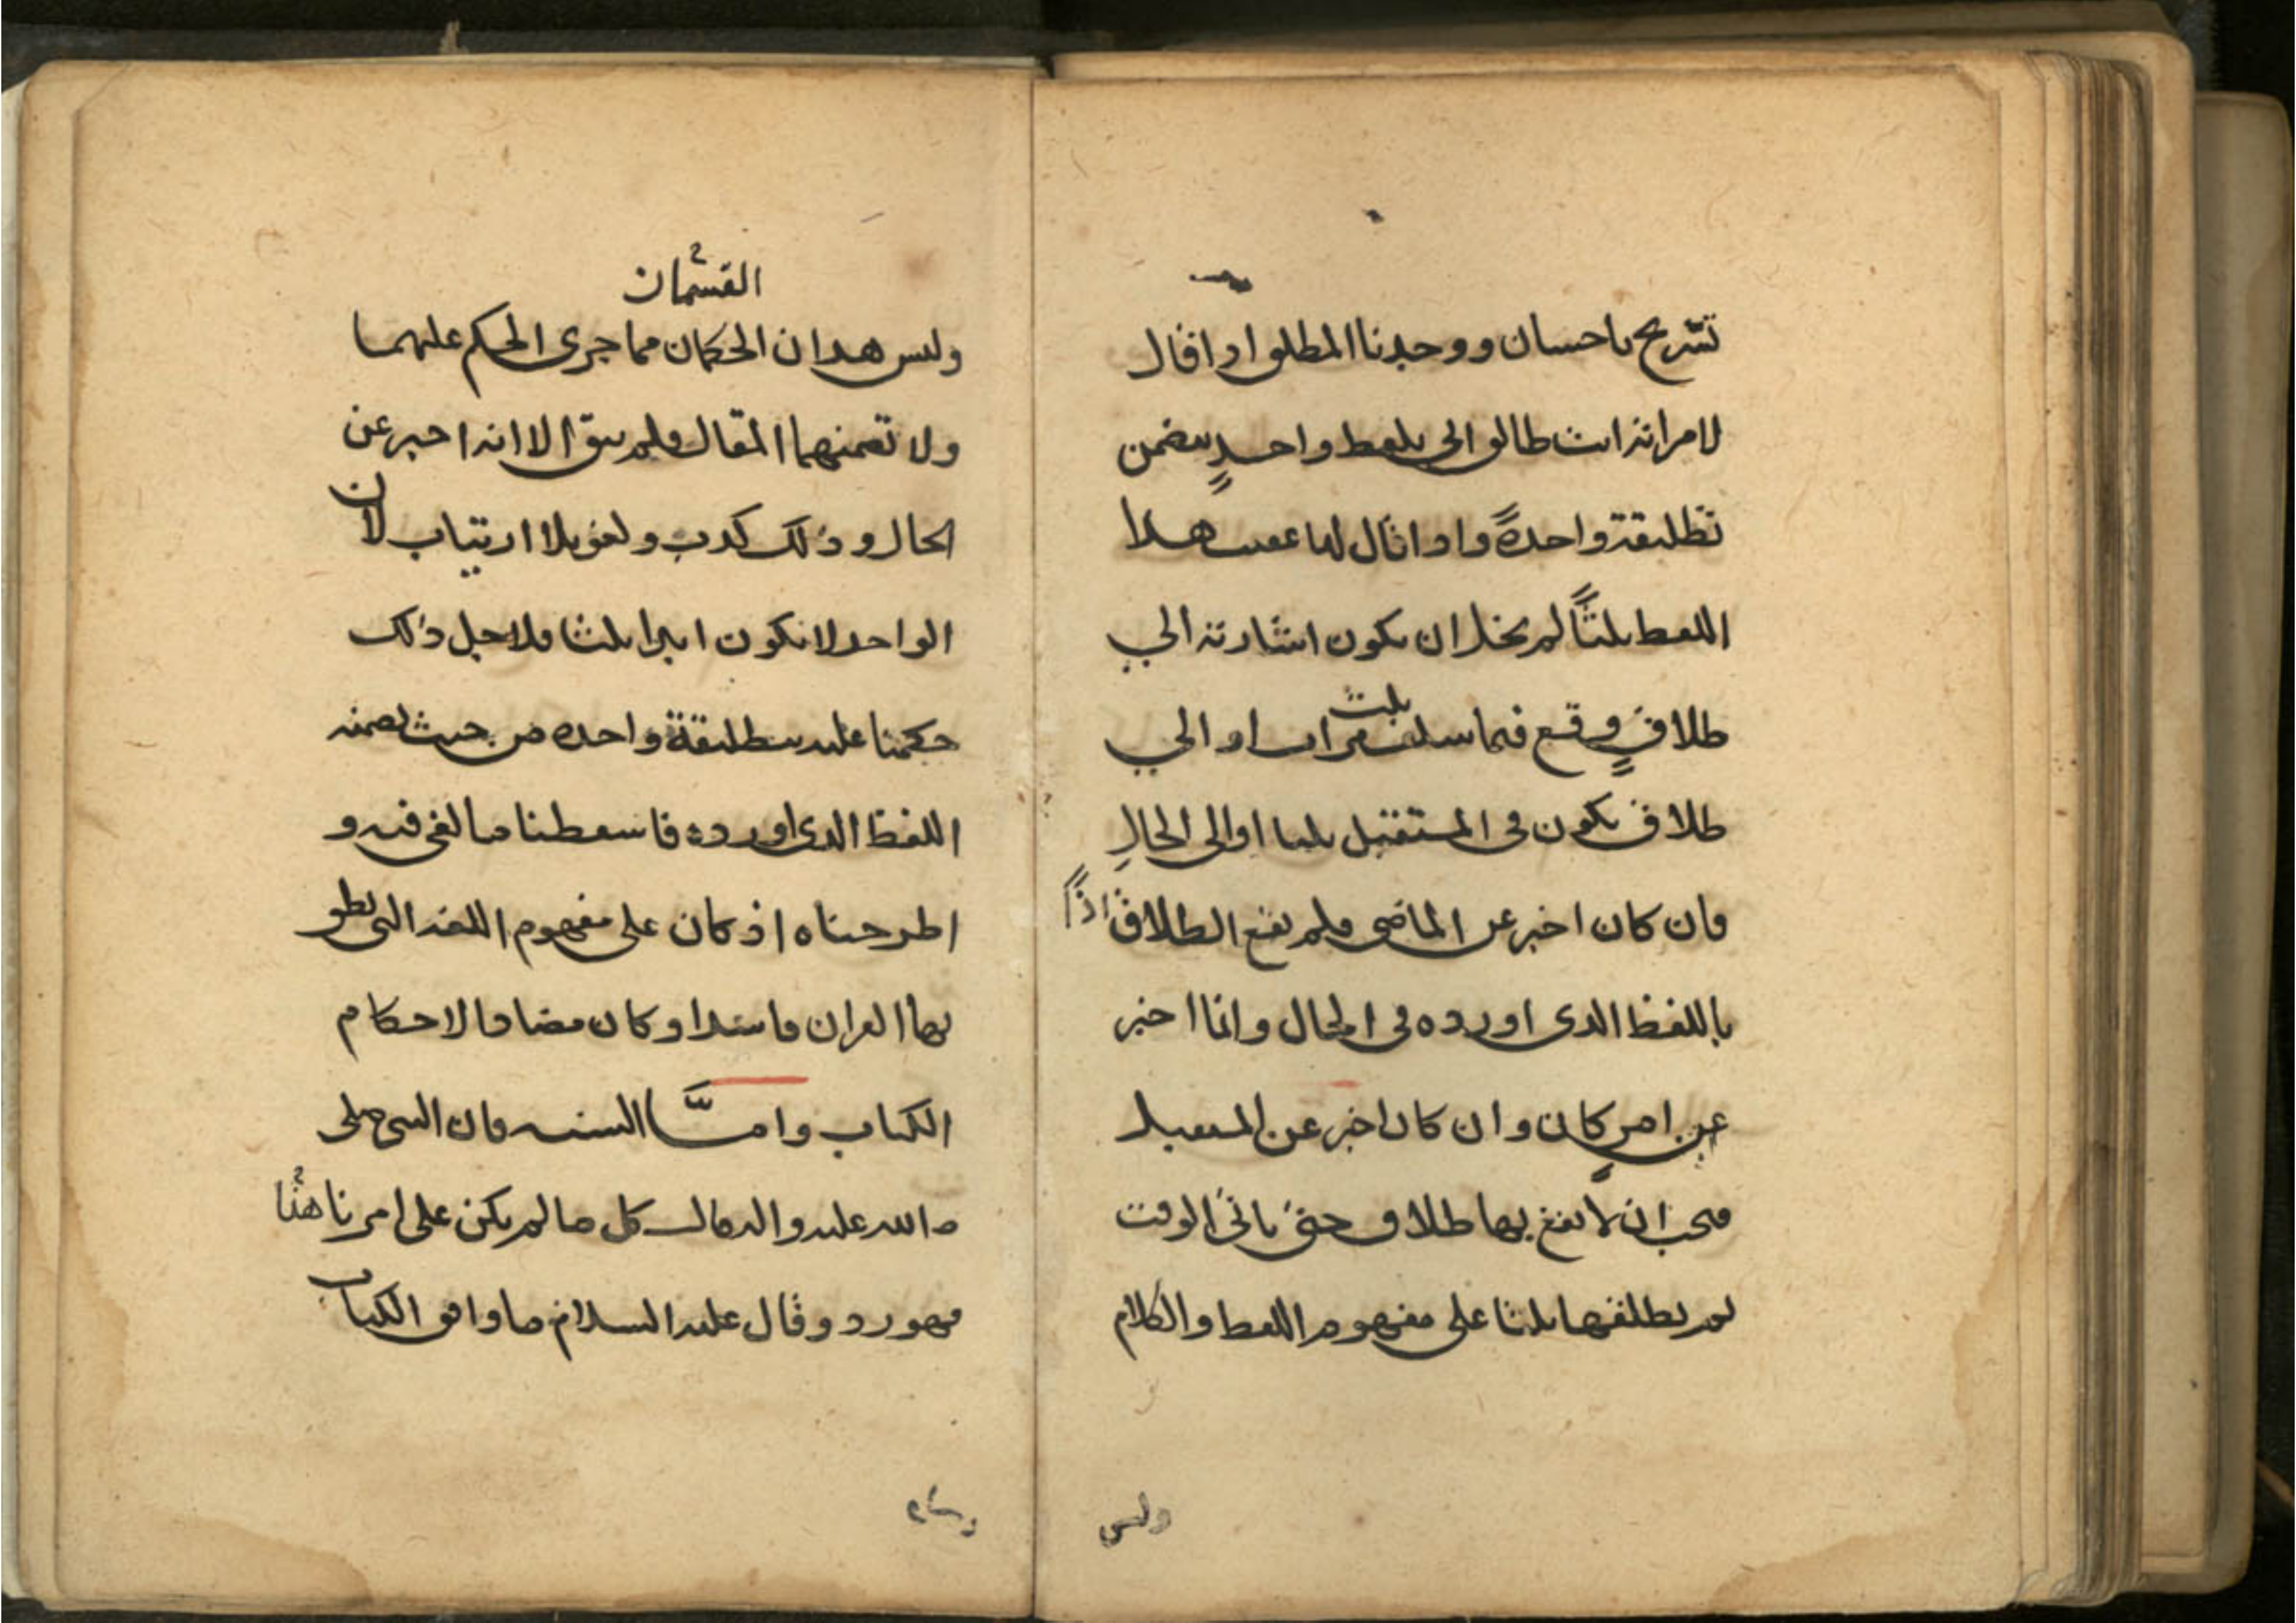 تسريح باحسان ووجدنا المطلق اذا قال
لامراته انت طالق اتى بلفظ واحدٍ يتضمن
تطليقة واحدةً واذا قال لها عقيب هذا
اللفظ ثلثاً لم يخل ان يكون اشارته الي
طلاقٍ وقع فيما سلف ثلث مرات او الي
طلاق يكون في المستقبل ثلثا او الى الحالِ
فان كان اخبر عن الماضي فلم يقع الطلاق اذاً
باللفظ الذى اورده في الحال وانما اخبر
عن امرٍ كان وان كان اخبر عن المستقبل
فيجب ان لا يقع بها طلاق حتى ياتى الوقت
ثم يطلقها ثلثا على مفهوم اللفظ والكلام
وليس
القسمان
وليس هذان الحكمان مما جرى الحكم عليهما
ولا تضمنهما المقال فلم يبق الا انه اخبر عن
الحال وذلك كذب ولغو بلا ارتياب لان
الواحد لا تكون ابدا ثلثا فلاجل ذلك
حكمنا عليه بتطليقة واحده من حيث تضمنه
اللفظ الذى اورده فاسقطنا ما لغى فيه و
اطرحناه اذ كان على مفهوم اللغه التى نطق
بها القران فاسدا وكان مضادا لاحكام
الكتاب وامّا السنه فان النبى صلى
الله عليه واله قال كل ما لم يكن على امرنا هذا
فهو رد وقال عليه السلام ما وافق الكتاب